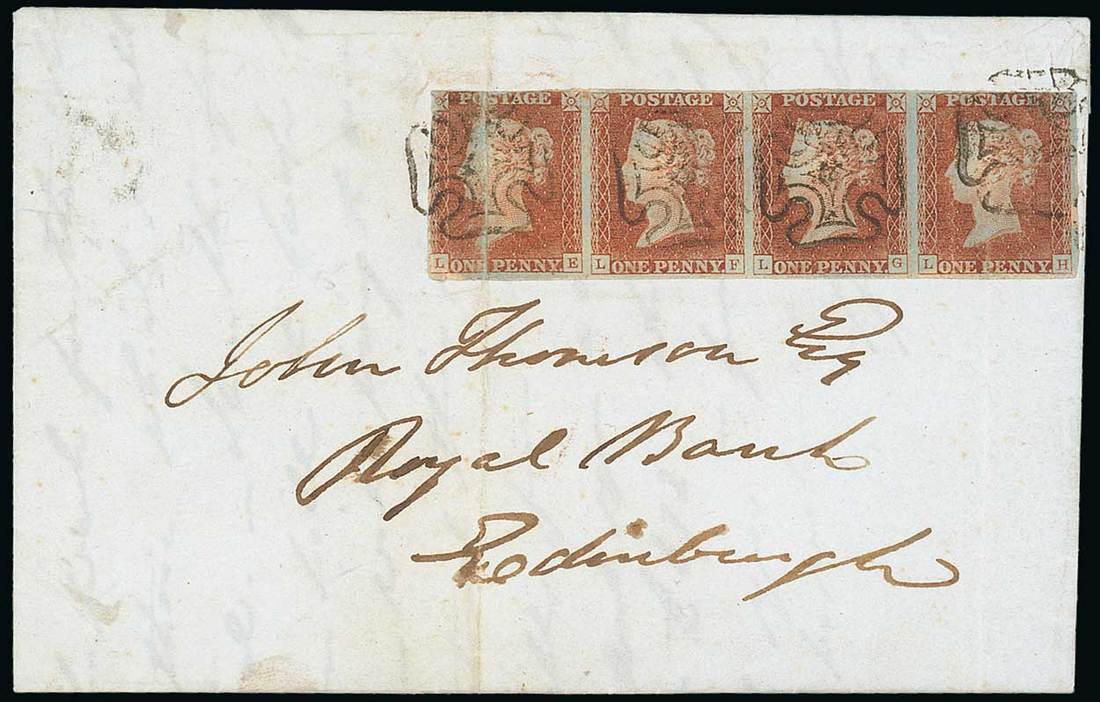 POSTAGE POSTAGE POSTAGE POSTAGE
L ONE PENNY E L ONE PENNY F L ONE PENNY G L ONE PENNY H
John Thomson Esq
Royal Bank
Edinburgh